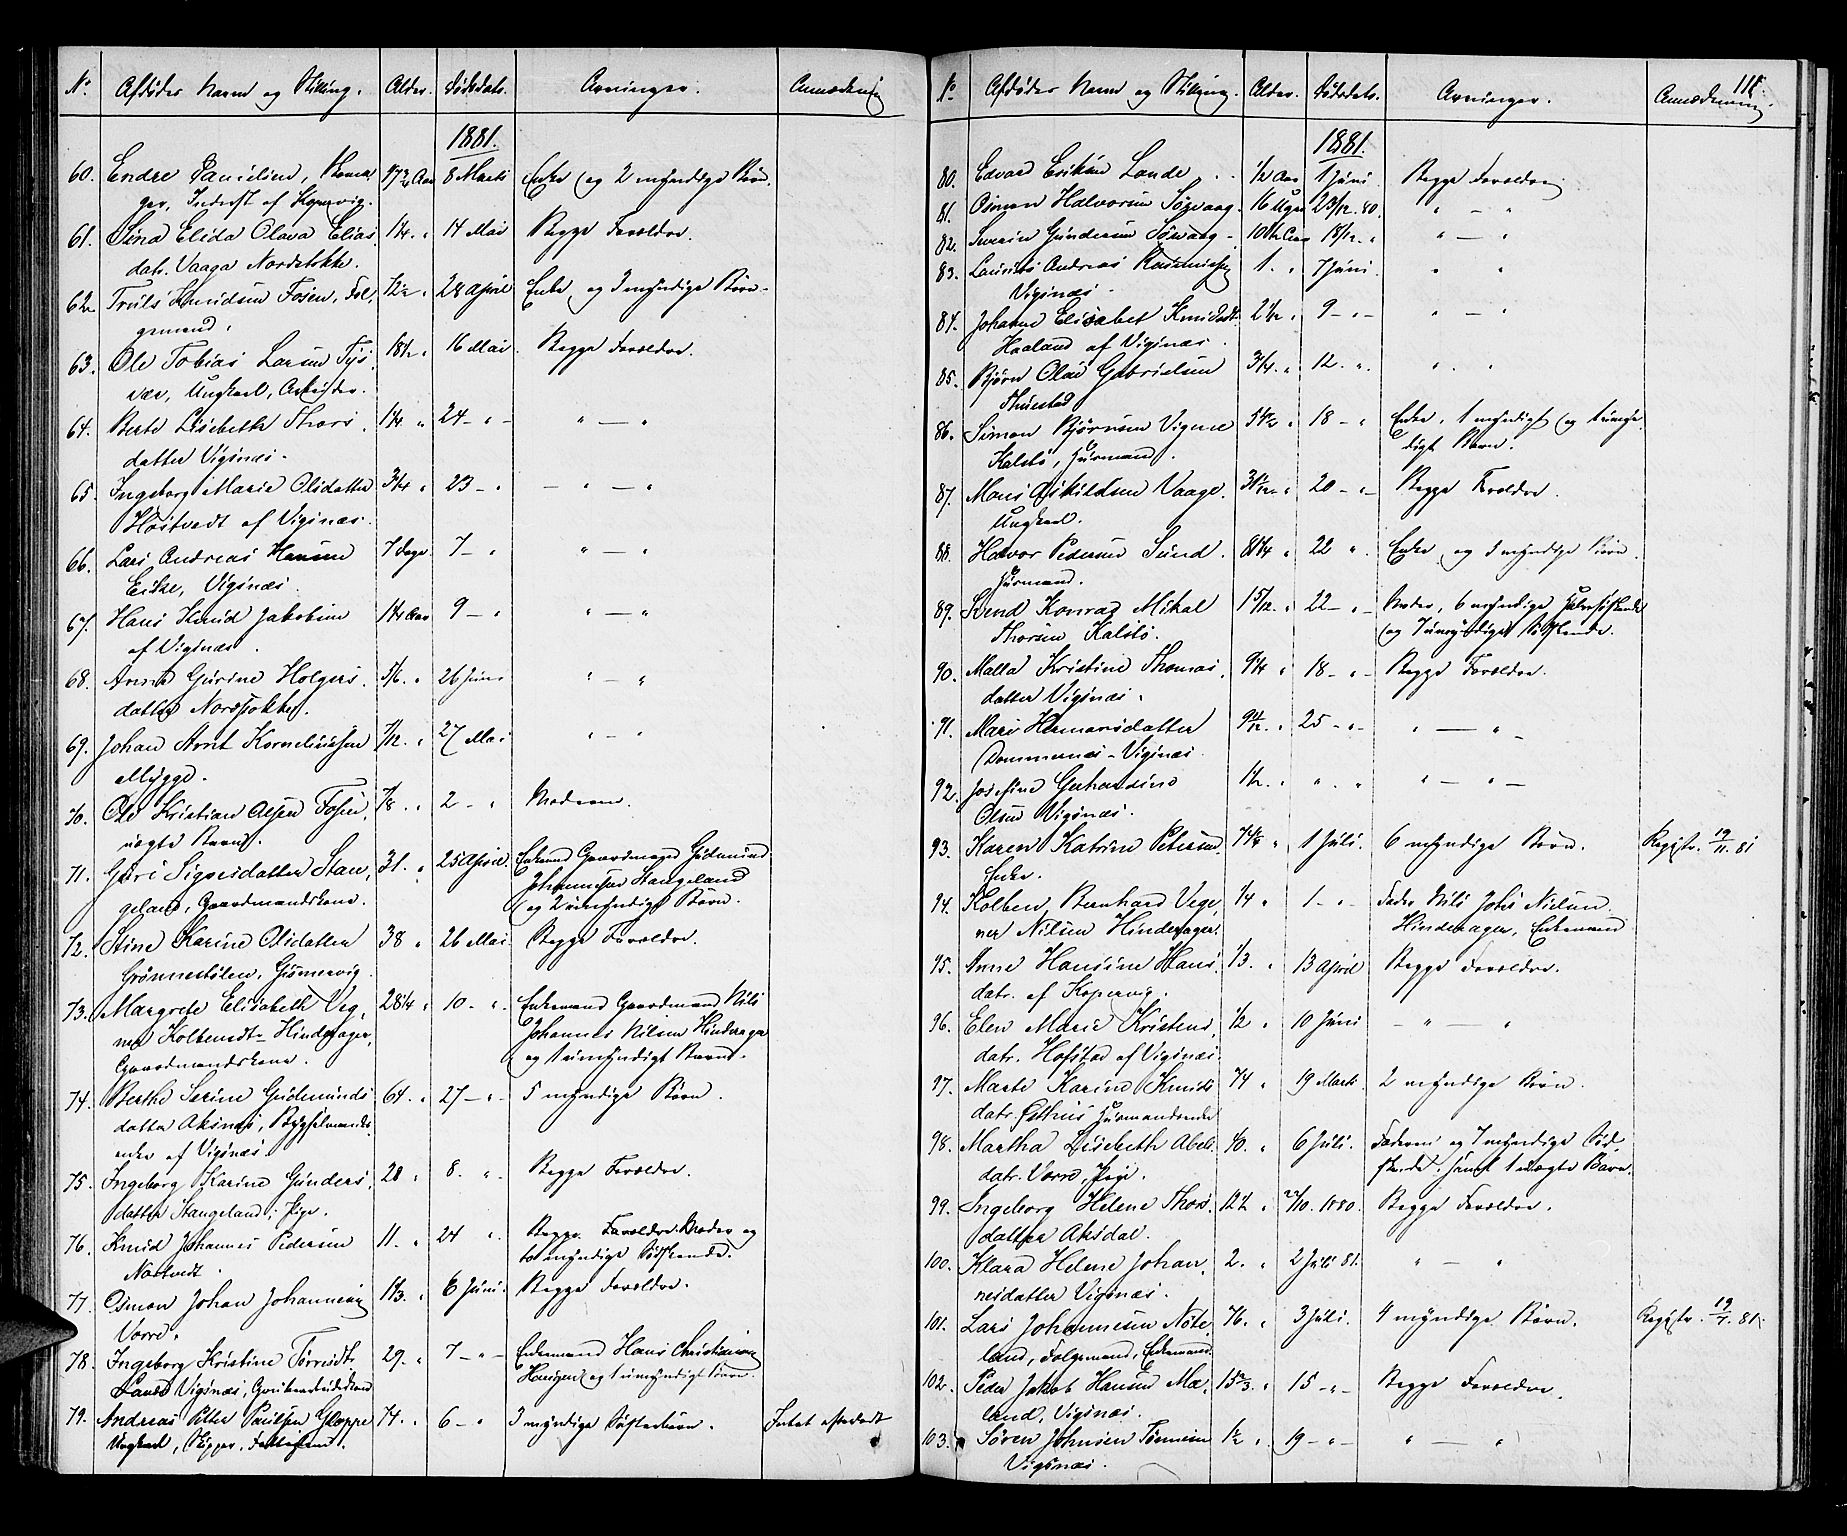 No. Afdødes Navn og Stilling. Alder. Dødsdato. Arvinger. Anmærkning
1881.
60. Endre Danielsen, Borger, Inderst af Kopervig. 8 Marts Enke og 2 myndige Børn.
61. Sina Elida Olava Eliasdatr. Vaaga Nordstokke. 1 1/4 " 14 Mai Begge Forældre.
62. Truls Knudsen Fosen, Folgemand. 28 April Enke og 3 myndige Børn.
63. Ole Tobias Larsen Tysvær, Ungkarl, Arbeider. 18 1/2 " 16 Mai. Begge Forældre.
64. Berte Lisebeth Thorsdatter Vigsnæs. 1 1/4 " 24 - " - " — "
65. Ingeborg Marie Olsdatter Høstvedt af Vigsnæs. 3/4 " 23 - " — " — "
66. Lars Andreas Hansen Eiske, Vigsnæs. 7 Dage 7 - " " — "
67. Hans Knud Jakobsen af Vigsnæs. 1 1/4 Aar 9 - " " — "
68. Anna Gurine Holgersdatter Nordstokke. 5/6 " 26 Juni " — "
69. Johan Arnt Korneliussen Mygge. 7/12 " 27 Mai " — "
70. Ole Kristian Olsen Fosen, uægte Barn. 7/8 " 2 - " Moderen.
71. Guri Sigvesdatter Stangeland, Gaardmandskone. 31. " 25 April. Enkemand Gaardmand Gudmund Johannesen Stangeland og 2 umyndige Børn.
72. Stine Karine Olsdatter Grønnestølen, 38 " 26 Mai. Begge Forældre.
73. Margrete Elisabeth Vegner Kolbensdt. Hinderager, Gaardmandskone. 28 1/4 " 10 - " Enkemand Gaardmand Nils Johannes Nilsen Hinderager og 1 umyndigt Barn.
74. Berthe Serine Gudmundsdatter Aksnes, Bygselmandsenke af Vigsnæs. 64. " 27 - " - 5 myndige Børn.
75. Ingeborg Karine Gundersdatter Stangeland, Pige. 28 " 8. " Begge Forældre.
76. Knud Johannes Pedersen Nortvedt. 11. " 24 " Begge Forældre. Moder og to myndige Søskende.
77. Osmon Johan Johannessen Vorre. 1 1/3. " 6 Juni. Begge Forældre.
78. Ingeborg Kristine Vigsnæs, 29. " 7 - " - Enkemand Hans Christiansen Hansen og 1 umyndigt Barn.
79. Andreas Petter Paulsen Gloppe Ungkarl, Skipper, 74. " 6 - " 3 myndige Søsterbørn. Intet efterladt
No. Afdødes Navn og Stilling. Alder. Dødsdato. Arvinger. Anmærkning. 111.
1881.
80. Edvard Eriksen Lande 1/2 Aar 1 Juni. Begge Forældre
81. Osmon Halvorsen Søvaag. 16 Uger 23/12. 80. " — "
82. Severin Gundersen Søvaag - " — "
83. Laurits Andreas Rasmussen Vigsnæs. 1. " 7 Juni. " "
84. Johanne Elisabet Knudsdt. Haaland af Vigsnæs. 2 1/2 " 9 - " - " — "
85. Bjørn Olai Gabrielsen Thuestad 3/4. " 12. " " . "
86. Simon Bjørnsen Vigene Kalstø, Husmand. 18 - " Enke, 1 myndigt og 1 umyndigt Barn.
87. Mons Eskildsen Vaage. Ungkarl. 20 - " - Begge Forældre.
88. Halvor Pedersen Sund. Husmand. 81 1/4 " 22 " Enke og 5 myndige Børn.
89. Svend Konrad Mikal Thorsen Kalstø. 15/12. " 22 - " - Moder, 6 myndige Halvsøskende og 1 umyndige Søskende.
90. Malla Kristine Thomasdatter Vigsnæs. 9 1/4 " 18 - " - Begge Forældre.
91. Mari Hermansdatter Dommersnes - Vigsnæs. 25 - " - " — " -
92. Josefine Gerhardine Olsen Vigsnæs. 1 1/2. " . " " — " -
93. Karen Katrine Petersen, Enke. 1 Juli. 6 myndige Børn. Registr. 19/11. 81
94. Kolben Bernhard Vegner Nilsen Hinderager. 1/4 " 1 - " - Fader Nils Johs Nielsen Hinderager, Enkemand
95. Anne Hansine Hansdatr. af Kopervig. 1/3. " 13 April Begge Forældre.
96. Elen Marie Kristensdatr. Hofstad af Vigsnæs. 1/2 " 10 Juni — " "
97. Marte Karine Knutsdatr. Husmandsenke 74 " 19 Marts 2 myndige Børn.
98. Martha Lisebeth Abelsdatr. Vorre, Pige. 40. " 6 Juli. Faderen og 7 myndige Søskende samt 1 uægte Barn.
99. Ingeborg Helene Thorsdatter Aksdal. 12 1/2 " 1880. Begge Forældre.
100. Klara Helene Johannesdatter Vigsnæs. 2. " 2 Juli 81. " — "
101. Lars Johannesen Noteland, Folgemand, Enkemand. 76. " 3 Juli. 4 myndige Børn. Registr. 19/7. 81.
102. Peder Jakob Hansen Mæland, Vigsnæs. 15 2/3. " 15 - " - Begge Forældre.
103. Søren Johnsen Tønnesen Vigsnæs. 1 1/2 " 19 - " - " — "